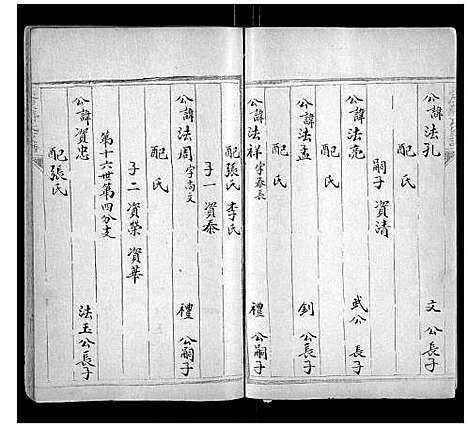 公諱法孔　文公長子
配　氏
嗣子　資清
公諱法亮　武公長子
配　氏
公諱法孟　釗公長子
配　氏
公諱法祥字泰長　禮公嗣子
配張氏　李氏
子一　資泰
公諱法周字尚文　禮公嗣子
配　氏
子二　資榮　資華
第十六世第四分支
公諱資忠　法玉公長子
配張氏